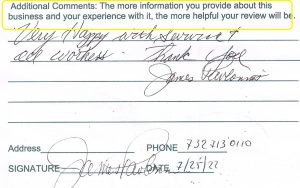 Additional Comments: The more information you provide about this
business and your experience with it, the more helpful your review will be.
Very Happy with service &
all workers. Thank You
James
Address PHONE 732 713 0110
SIGNATURE DATE 7/25/22